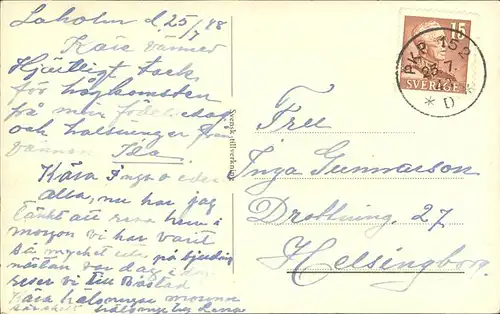 Laholm d. 25/7 48
Kära vänner
Hjärtligt tack
för hågkomsten
på min födelsedag
och hälsningar från
vännen Ida
Kära Inga o eder
alla, nu har jag
tänkt att resa hem i
morgon vi har varit
så mycket ute på bjudning
nästan var dag i dag
reser vi till Båstad
Kära hälsningar
hälsning
Svensk tillverkning
15
SVERIGE
PKP 152
25. 7.
* D *
Fru
Inga Gunnarson
Drottning. 27
Helsingborg.